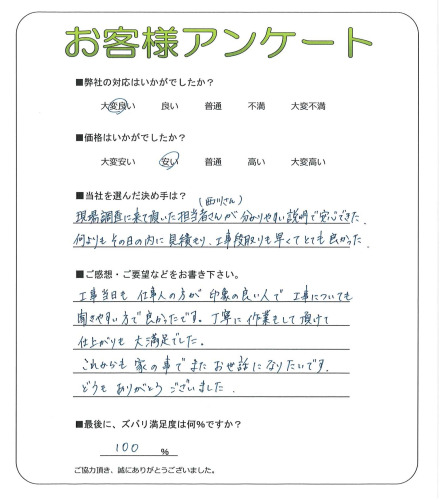 お客様アンケート
■弊社の対応はいかがでしたか？
大変良い 良い 普通 不満 大変不満
■価格はいかがでしたか？
大変安い 安い 普通 高い 大変高い
■当社を選んだ決め手は？
(西川さん)
現場調査に来て頂いた担当者さんが分かりやすい説明で安心できた.
何よりもその日の内に見積もり、工事段取りも早くてとても良かった.
■ご感想・ご要望などをお書き下さい。
工事当日も 仕事人の方が 印象の良い人で 工事についても
聞きやすい方で良かったです。丁寧に作業もして頂けて
仕上がりも 大満足でした。
これからも 家の事で またお世話になりたいです.
どうも ありがとう ございました.
■最後に、ズバリ満足度は何%ですか？
100 %
ご協力頂き、誠にありがとうございました。